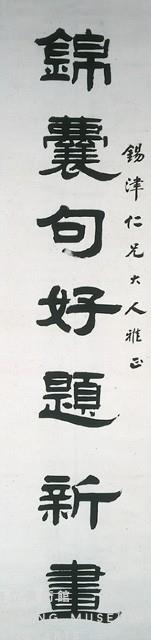 錫津仁兄大人雅正
錦囊句好題新畫
術館
NG MUSE